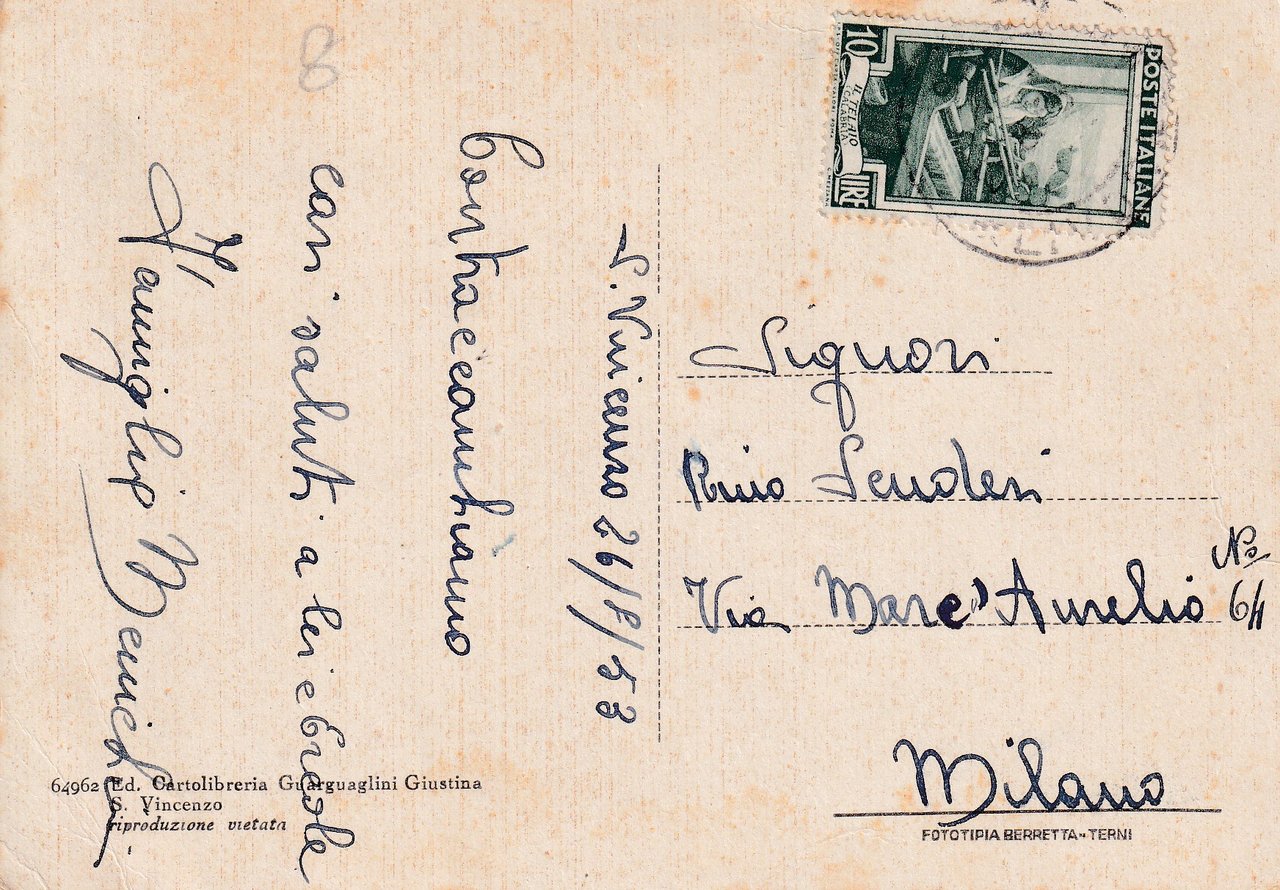 8
S. Vincenzo 26/8/53
Contraccambiamo
cari saluti a lei e Eraole
Famiglia
64962 Ed. Cartolibreria Guarguaglini Giustina
S. Vincenzo
riproduzione vietata
POSTE ITALIANE
IL TELAIO
CALABRIA
10 LIRE
Signori
Rino Senderi
Via Marc'Aurelio No 64
Milano
FOTOTIPIA BERRETTA - TERNI